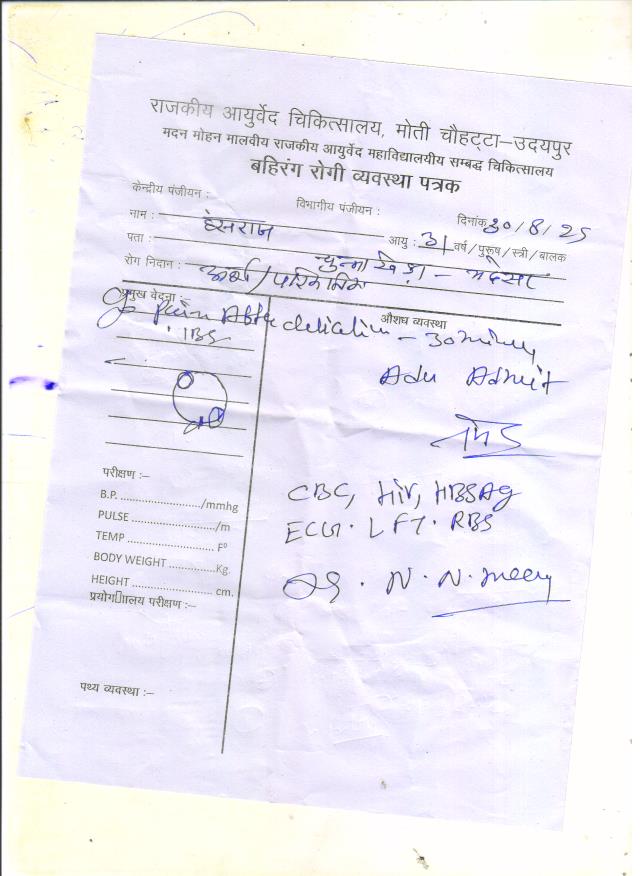 राजकीय आयुर्वेद चिकित्सालय, मोती चौहट्टा–उदयपुर
मदन मोहन मालवीय राजकीय आयुर्वेद महाविद्यालयीय सम्बद्ध चिकित्सालय
बहिरंग रोगी व्यवस्था पत्रक
केन्द्रीय पंजीयन : विभागीय पंजीयन : दिनांक 30/8/25
नाम : हंसराज आयु : 31 वर्ष/पुरूष/स्त्री/बालक
पता :
रोग निदान : अर्श/
प्रमुख वेदना :– औशघ व्यवस्था
Pain After – 30
IBS
Adv Admit
परीक्षण :–
CBC, HIV, HBSAg
B.P. ........................./mmhg
ECG. LFT. RBS
PULSE ............................/m
TEMP ........................... F⁰
BODY WEIGHT ...............Kg.
HEIGHT ......................... cm.
N. N.
प्रयोगाालय परीक्षण :–
पथ्य व्यवस्था :–